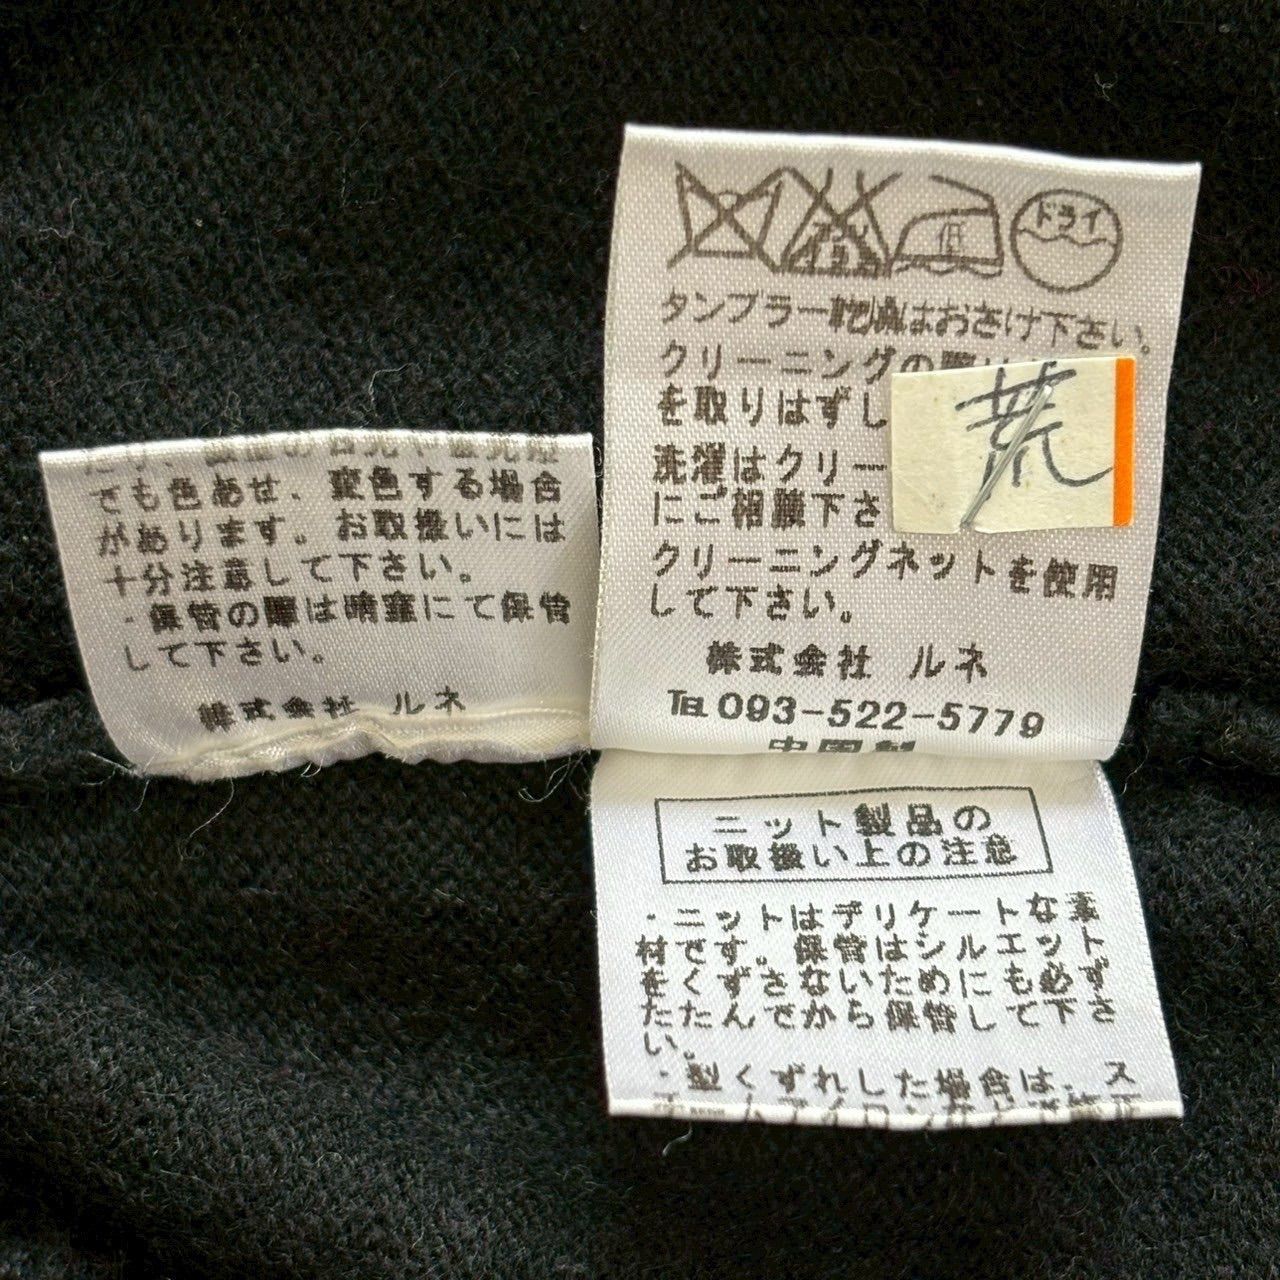 でも色あせ、変色する場合
があります。お取扱いには
十分注意して下さい。
・保管の際は暗室にて保管
して下さい。
株式会社 ルネ
低
ドライ
タンブラー乾燥はおさけ下さい。
クリーニングの際
を取りはずし
洗濯はクリー
にご相談下さ
クリーニングネットを使用
して下さい。
株式会社 ルネ
TEL 093-522-5779
中国製
荒
ニット製品の
お取扱い上の注意
・ニットはデリケートな素
材です。保管はシルエット
をくずさないためにも必ず
たたんでから保管して下さ
い。
・型くずれした場合は、ス